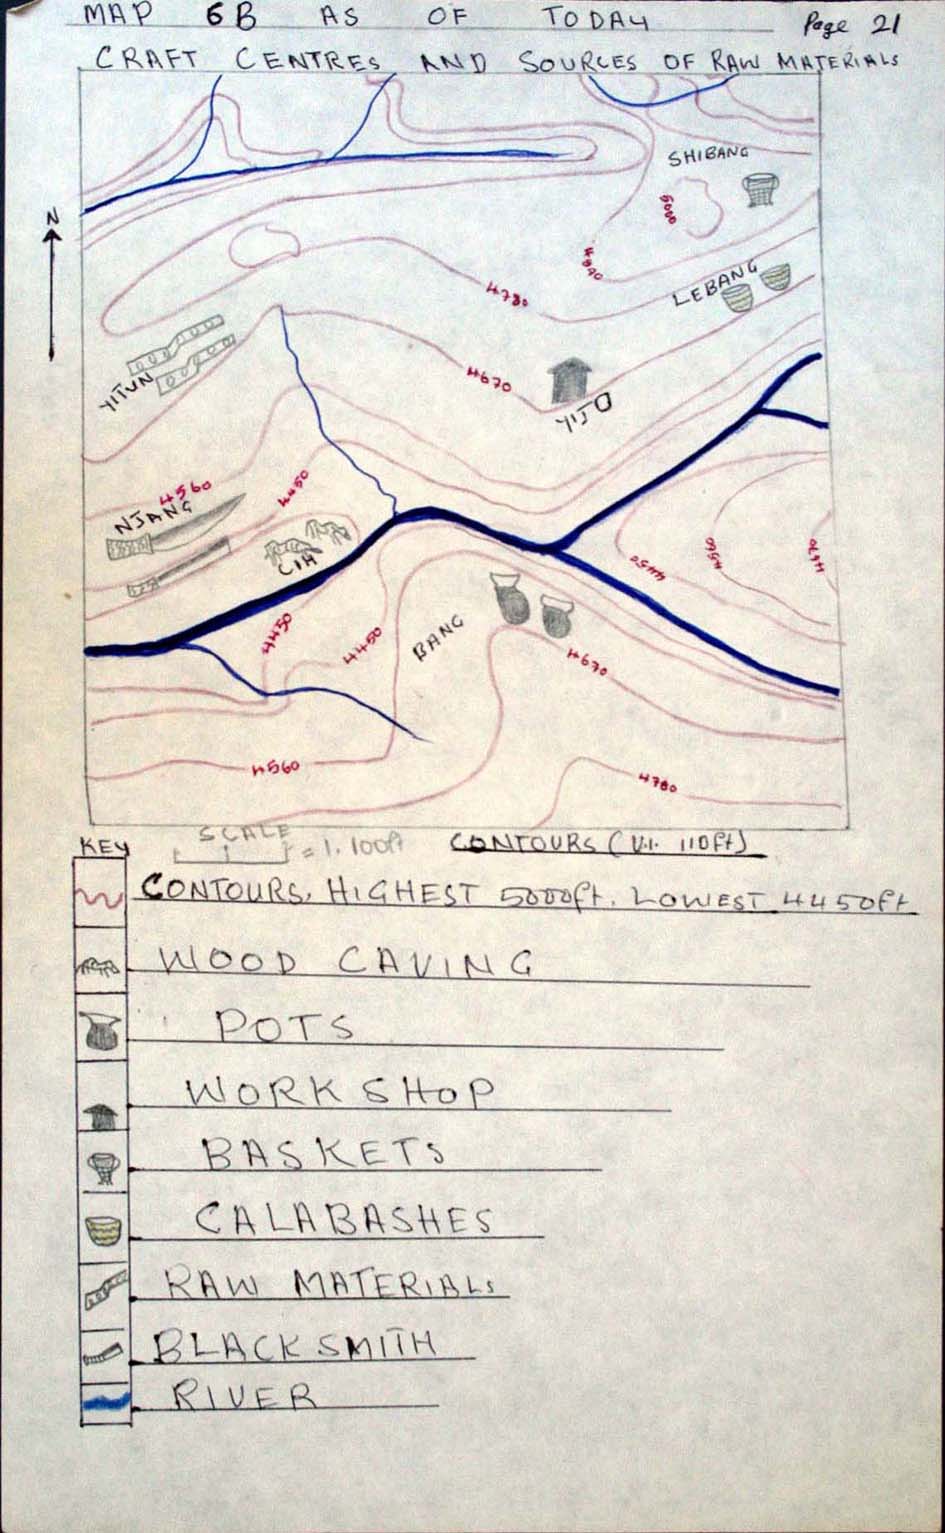 MAP 6B AS OF TODAY
Page 21
CRAFT CENTRES AND SOURCES OF RAW MATERIALS
N
SHIBANG
5000
4890
LEBANG
4780
YITUN
4670
YIJO
4560
4450
NJANG
CIH
4450
4560
4670
4450
4450
BANG
4670
4560
4780
KEY
SCALE
= 1.100ft
CONTOURS (V.I. 110ft)
CONTOURS, HIGHEST 5000ft. LOWEST 4450ft
WOOD CAVING
POTS
WORKSHOP
BASKETS
CALABASHES
RAW MATERIALS
BLACKSMITH
RIVER